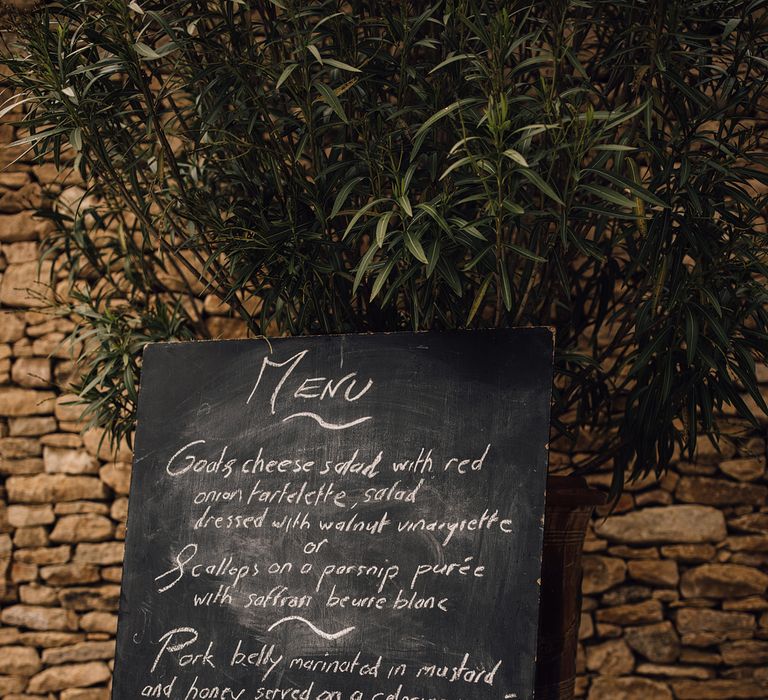 MENU
Goats cheese salad with red
onion tartelette, salad
dressed with walnut vinaigrette
or
Scallops on a parsnip purée
with saffran beurre blanc
Pork belly marinated in mustard
and honey served on a